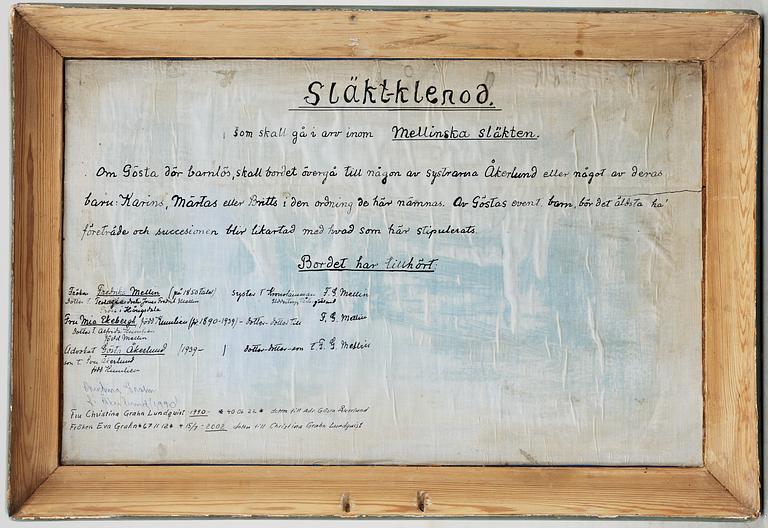 Släkt-klenod.
som skall gå i arv inom Mellinska släkten.
Om Gösta dör barnlös, skall bordet övergå till någon av systrarna Åkerlund eller något av deras
barn: Karins, Märtas eller Britts i den ordning de här nämnas. Av Göstas event. barn, bör det äldsta ha
företräde och successionen blir likartad med hvad som här stipulerats.
Bordet har tillhört:
Fröken Fredrika Mellin (på 1850talet) syster t F. G. Mellin
Dotter t.
Fru Mia Ekeberg född (på 1890-1939) - dotter-dotter till F. G. Mellin
Dotter t. Alfrida
född Mellin
Advokat Gösta Åkerlund (1939- ) dotter-dotter-son t. F. G. Mellin
son t. Fru Åkerlund
född
Grahn
f. Åkerlund (1990)
Fru Christina Grahn Lundquist 1990- * 40 06 22 * dotter till adv. Gösta Åkerlund
Fröken Eva Grahn * 67 11 12 * + 15/7 - 2002 dotter till Christina Grahn Lundquist